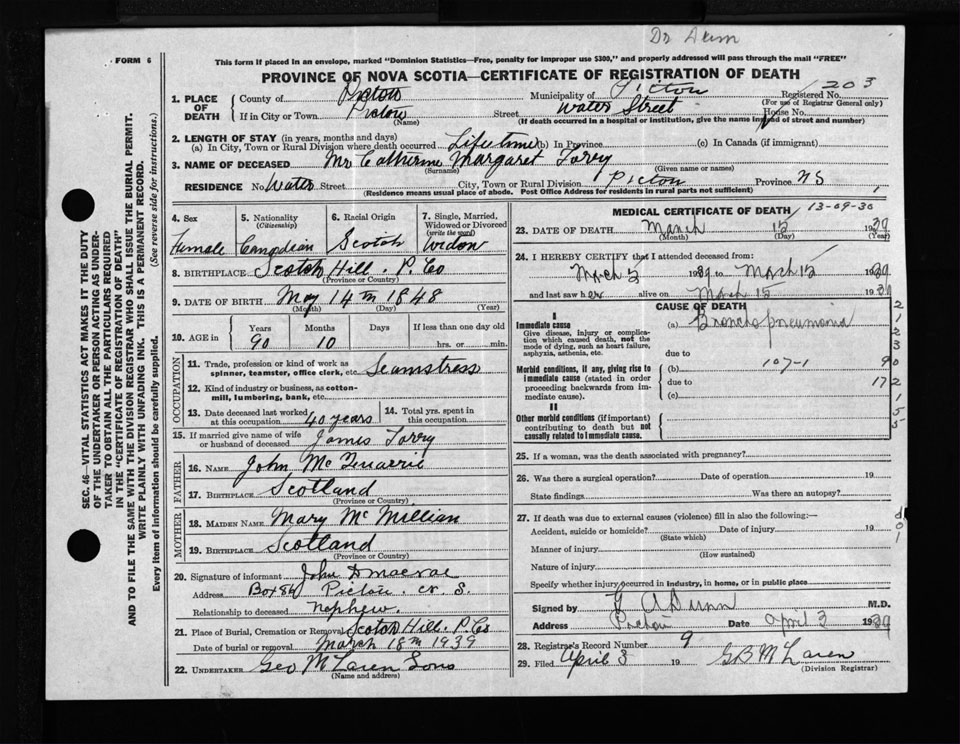 Dr Dunn
FORM 6
This form if placed in an envelope, marked "Dominion Statistics—Free, penalty for improper use $300," and properly addressed will pass through the mail "FREE"
PROVINCE OF NOVA SCOTIA—CERTIFICATE OF REGISTRATION OF DEATH
1. PLACE OF DEATH County of Pictou Municipality of Pictou Registered No. 203
(For use of Registrar General only)
If in City or Town Pictou Street Water Street House No.
(Name) (If death occurred in a hospital or institution, give the name instead of street and number)
2. LENGTH OF STAY (in years, months and days)
(a) In City, Town or Rural Division where death occurred Lifetime (b) In Province (c) In Canada (if immigrant)
3. NAME OF DECEASED Mrs Catherine Margaret Torry
(Surname) (Given name or names)
RESIDENCE No. Water Street City, Town or Rural Division Pictou Province N S
(Residence means usual place of abode. Post Office Address for residents in rural parts not sufficient)
4. Sex Female
5. Nationality (Citizenship) Canadian
6. Racial Origin Scotch
7. Single, Married, Widowed or Divorced (write the word) Widow
8. BIRTHPLACE Scotch Hill. P. Co
(Province or Country)
9. DATE OF BIRTH May 14th 1848
(Month) (Day) (Year)
10. AGE in Years 90 Months 10 Days If less than one day old hrs. or min.
OCCUPATION
11. Trade, profession or kind of work as spinner, teamster, office clerk, etc. Seamstress
12. Kind of industry or business, as cotton-mill, lumbering, bank, etc.
13. Date deceased last worked at this occupation 40 years 14. Total yrs. spent in this occupation
15. If married give name of wife or husband of deceased James Torry
FATHER
16. NAME John Mc
17. BIRTHPLACE Scotland
(Province or Country)
MOTHER
18. MAIDEN NAME Mary McMillian
19. BIRTHPLACE Scotland
(Province or Country)
20. Signature of informant John
Address Box 86 Pictou. N. S.
Relationship to deceased nephew.
21. Place of Burial, Cremation or Removal Scotch Hill. P. Co
Date of burial or removal March 18th 1939
22. UNDERTAKER Geo McLaren Sons
(Name and address)
MEDICAL CERTIFICATE OF DEATH 13-09-30
23. DATE OF DEATH March 15 1939
(Month) (Day) (Year)
24. I HEREBY CERTIFY that I attended deceased from:
March 5 1939 to March 15 1939
and last saw her alive on March 15 1939
CAUSE OF DEATH
I
Immediate cause (a) Bronchopneumonia
Give disease, injury or complication which caused death, not the mode of dying, such as heart failure, asphyxia, asthenia, etc.
due to
Morbid conditions, if any, giving rise to immediate cause (stated in order proceeding backwards from immediate cause). (b) 107-1
due to
(c)
II
Other morbid conditions (if important) contributing to death but not causally related to immediate cause.
25. If a woman, was the death associated with pregnancy?
26. Was there a surgical operation? Date of operation 19
State findings Was there an autopsy?
27. If death was due to external causes (violence) fill in also the following:—
Accident, suicide or homicide? Date of injury 19
(State which)
Manner of injury
(How sustained)
Nature of injury
Specify whether injury occurred in industry, in home, or in public place
Signed by A Dunn M.D.
Address Pictou Date April 3 1939
28. Registrar's Record Number 9
29. Filed April 3 19 G B McLaren
(Division Registrar)
SEC. 46—VITAL STATISTICS ACT MAKES IT THE DUTY
OF THE UNDERTAKER OR PERSON ACTING AS UNDER-
TAKER TO OBTAIN ALL THE PARTICULARS REQUIRED
IN THE "CERTIFICATE OF REGISTRATION OF DEATH"
AND TO FILE THE SAME WITH THE DIVISION REGISTRAR WHO SHALL ISSUE THE BURIAL PERMIT.
WRITE PLAINLY WITH UNFADING INK. THIS IS A PERMANENT RECORD.
Every item of information should be carefully supplied. (See reverse side for instructions.)